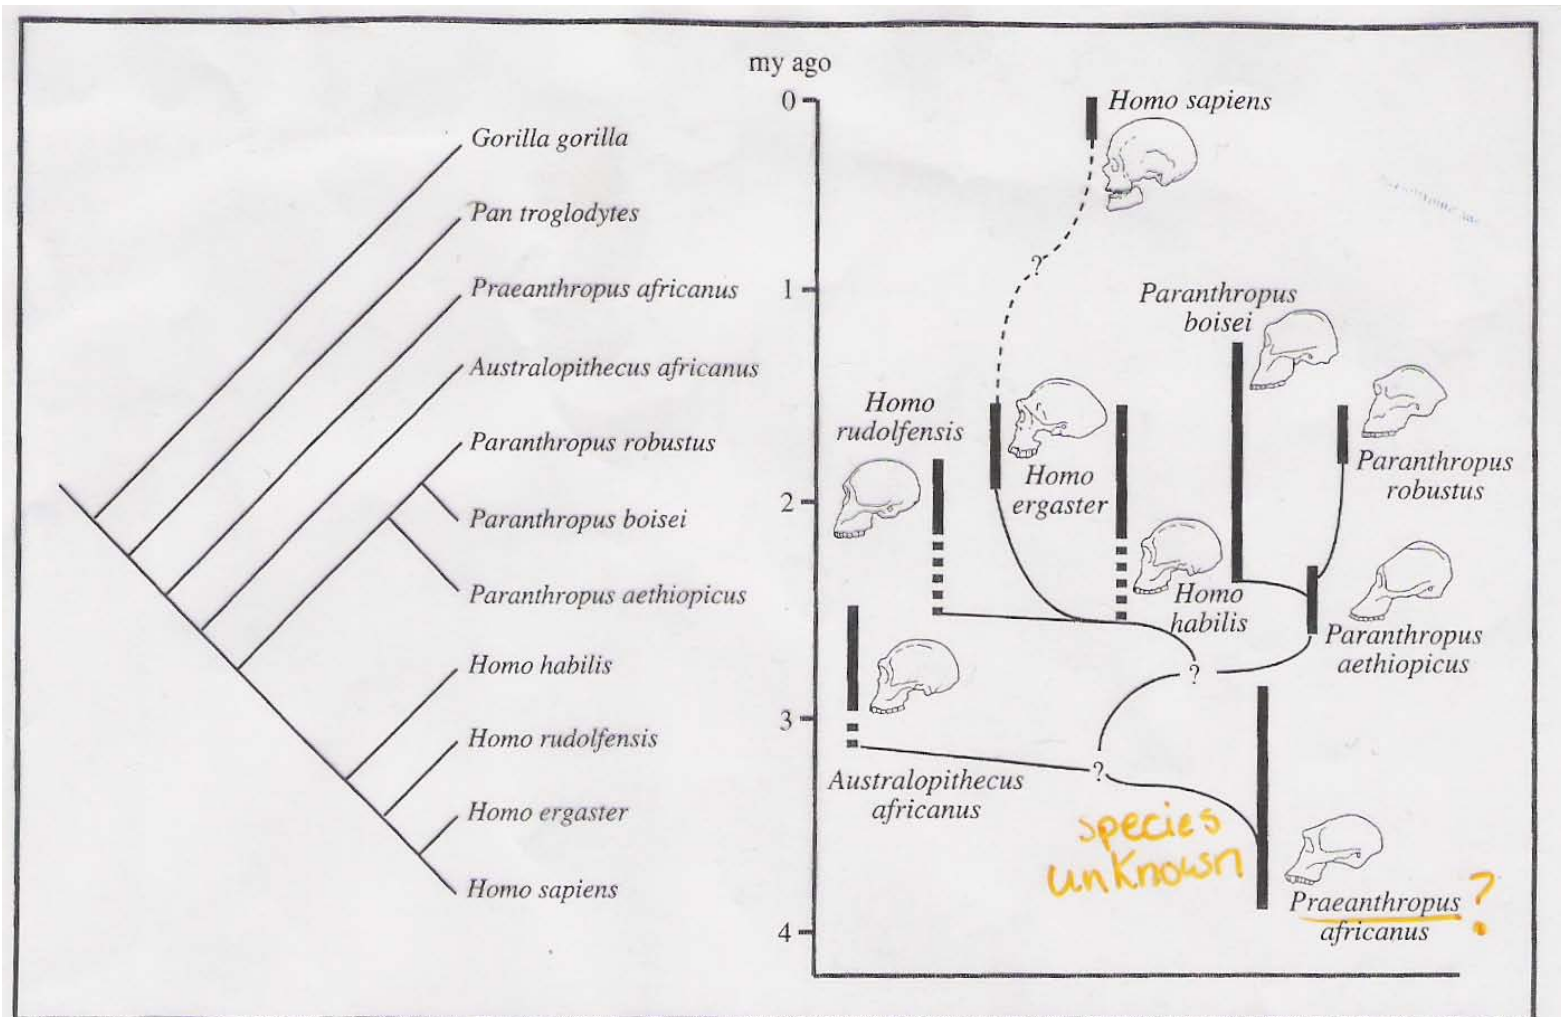 Gorilla gorilla
Pan troglodytes
Praeanthropus africanus
Australopithecus africanus
Paranthropus robustus
Paranthropus boisei
Paranthropus aethiopicus
Homo habilis
Homo rudolfensis
Homo ergaster
Homo sapiens
my ago
0
1
2
3
4
Homo sapiens
?
Paranthropus
boisei
Homo
rudolfensis
Homo
ergaster
Paranthropus
robustus
Homo
habilis
Paranthropus
aethiopicus
?
?
Australopithecus
africanus
species
unknown
Praeanthropus ?
africanus